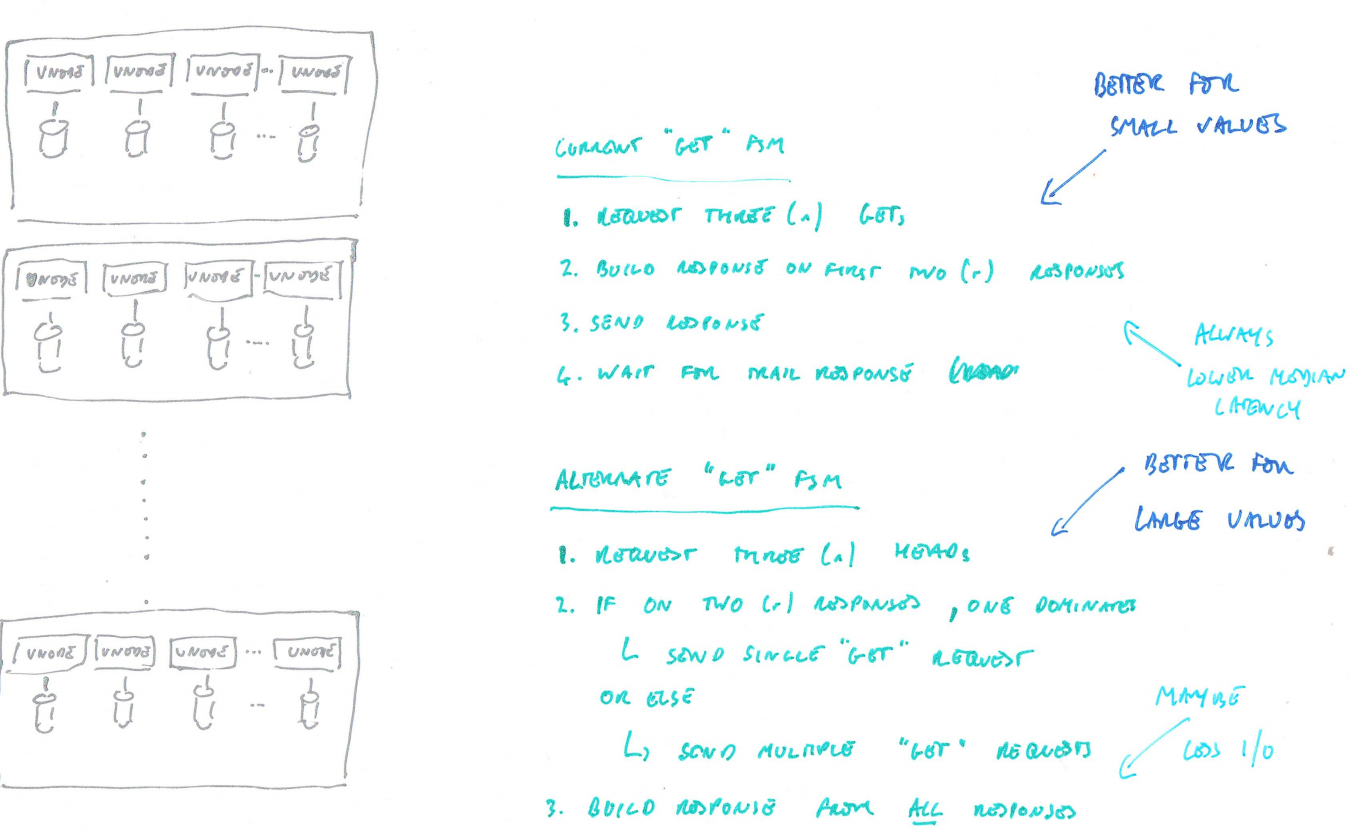 VNODE VNODE VNODE ... VNODE
VNODE VNODE VNODE - VNODE
VNODE VNODE VNODE ... VNODE
CURRENT "GET" FSM
1. REQUEST THREE (n) GETs
2. BUILD RESPONSE ON FIRST TWO (r) RESPONSES
3. SEND RESPONSE
4. WAIT FOR TRAIL RESPONSE
BETTER FOR
SMALL VALUES
ALWAYS
LOWER MEDIAN
LATENCY
ALTERNATE "GET" FSM
1. REQUEST THREE (n) HEADs
2. IF ON TWO (r) RESPONSES, ONE DOMINATES
SEND SINGLE "GET" REQUEST
OR ELSE
SEND MULTIPLE "GET" REQUESTS
3. BUILD RESPONSE FROM ALL RESPONSES
BETTER FOR
LARGE VALUES
MAYBE
LESS I/O